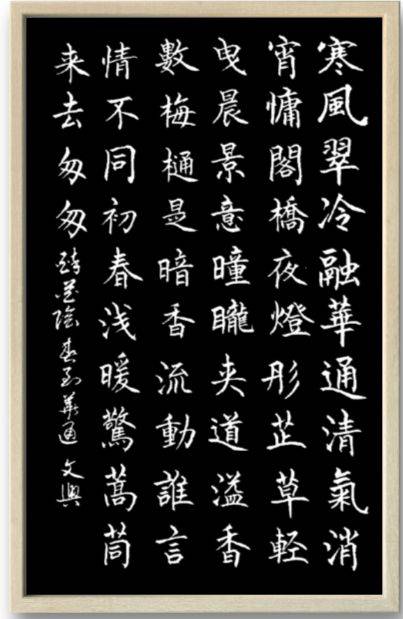 寒風翠冷融華通清氣消
宵慵閣橋夜燈彤芷草輕
曳晨景意曈曨夹道溢香
數梅樋是暗香流動誰言
情不同初春浅暖驚蒿茼
来去匆匆 華通 文興